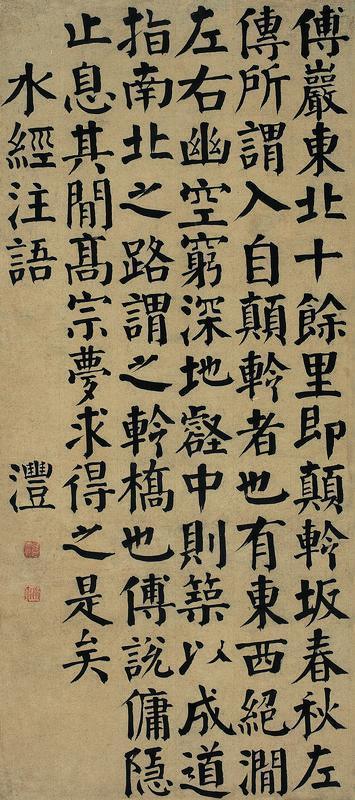 傅巖東北十餘里即顛軨坂春秋左
傳所謂入自顛軨者也有東西絕澗
左右幽空窮深地壑中則築以成道
指南北之路謂之軨橋也傅說傭隱
止息其間高宗夢求得之是矣
水經注語 灃